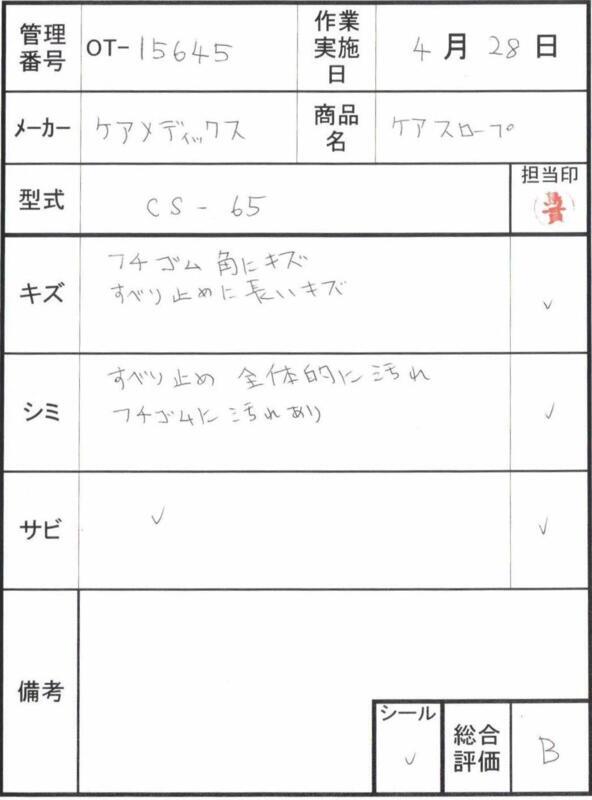 管理番号 OT-15645 作業実施日 4月28日
メーカー ケアメディックス 商品名 ケアスロープ
型式 CS-65 担当印
キズ フチゴム 角にキズ
すべり止めに長いキズ ✓
シミ すべり止め 全体的に汚れ
フチゴムに汚れあり ✓
サビ ✓ ✓
備考
シール ✓ 総合評価 B